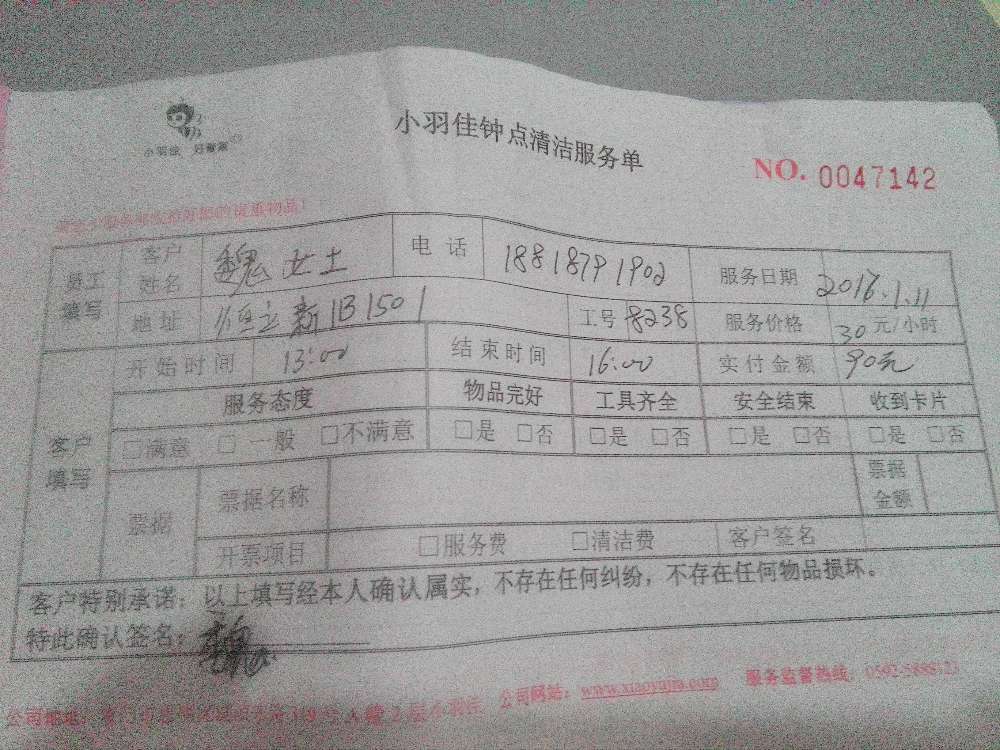 小羽佳 好管家
小羽佳钟点清洁服务单
NO. 0047142
员工填写 客户姓名 魏女士 电话 18818791902 服务日期 2016.1.11
地址 恒立新1B1501 工号 8238 服务价格 30元/小时
客户填写 开始时间 13:00 结束时间 16:00 实付金额 90元
服务态度 物品完好 工具齐全 安全结束 收到卡片
□满意 □一般 □不满意 □是 □否 □是 □否 □是 □否 □是 □否
票据 票据名称 票据金额
开票项目 □服务费 □清洁费 客户签名
客户特别承诺：以上填写经本人确认属实，不存在任何纠纷，不存在任何物品损坏。
特此确认签名：魏
公司地址：
公司网站：www.xiaoyujia.com
服务监督热线：0592-